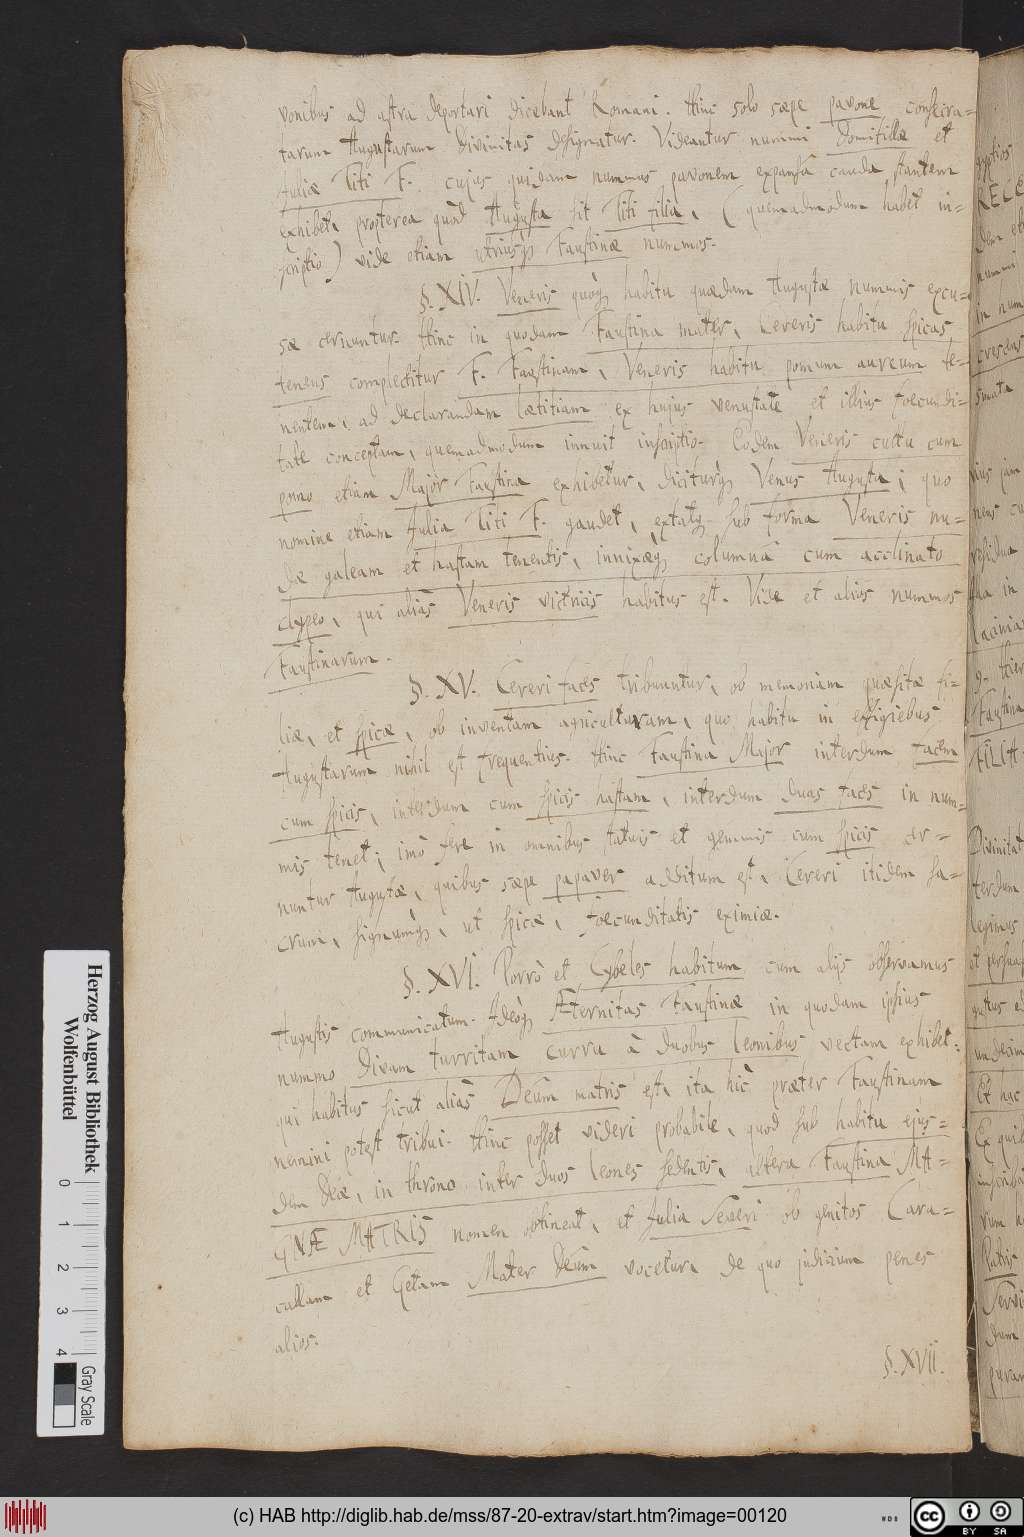 vonibus ad astra deportari dicebant Romani. Hinc solo sæpe pavone consecra=
tarum Augustarum Divinitas designatur. Videantur nummi Domitillæ et
Juliæ Titi F. cujus quidam nummus pavonem expansâ cauda stantem
exhibet, propterea quòd Augusta sit Titi filia, (quemadmodum habet in=
scriptio) vide etiam utriusq Faustinæ nummos.
§. XIV. Veneris quòq habitu quædam Augustæ nummis excu=
sæ cernuntur. Hinc in quodam Faustina mater, Cereris habitu spicas
tenens complectitur F. Faustinam, Veneris habitu pomum aureum te=
nentem, ad declarandam lætitiam ex hujus venustate et illius foecundi=
tate conceptam, quemadmodum innuit inscriptio. Eodem Veneris cultu cum
pomo etiam Major Faustina exhibetur, diciturq Venus Augusta; quo
nomine etiam Julia Titi F. gaudet, extatq sub forma Veneris nu=
dæ galeam et hastam tenentis, innixæq columnæ cum acclinato
clypeo, qui aliàs Veneris victricis habitus est. Vide et alios nummos
Faustinarum.
§. XV. Cereri faces tribuuntur, ob memoriam quæsitæ fi=
liæ, et spicæ, ob inventam agriculturam, quo habitu in effigiebus
Augustarum nihil est frequentius. Hinc Faustina Major interdum facem
cum spicis, interdum cum spicis hastam, interdum duas faces in num=
mis tenet; imò fere in omnibus statuis et gemmis cum spicis cer=
nuntur Augustæ, quibus sæpe papaver additum est, Cereri itidem sa=
crum, signumq, ut spicæ, foecunditatis eximiæ.
§. XVI. Porrò et Cybeles habitum cum alijs observamus
Augustis communicatum. Adeòq Æternitas Faustinæ in quodam ipsius
nummo Divam turritam curru à duobus leonibus vectam exhibet:
qui habitus sicut aliàs Deûm matris est, ita hîc præter Faustinam
nemini potest tribui. Hinc posset videri probabile, quod sub habitu ejus=
dem Deæ, in throno inter duos leones sedentis, altera Faustina MA=
GNÆ MATRIS nomen obtineat, et Julia Severi ob genitos Cara=
callam et Getam Mater Deûm vocetur, de quo judicium penes
alios.
§. XVII.
Herzog August Bibliothek
Wolfenbüttel
0 1 2 3 4
Gray Scale
(c) HAB http://diglib.hab.de/mss/87-20-extrav/start.htm?image=00120
cc BY SA